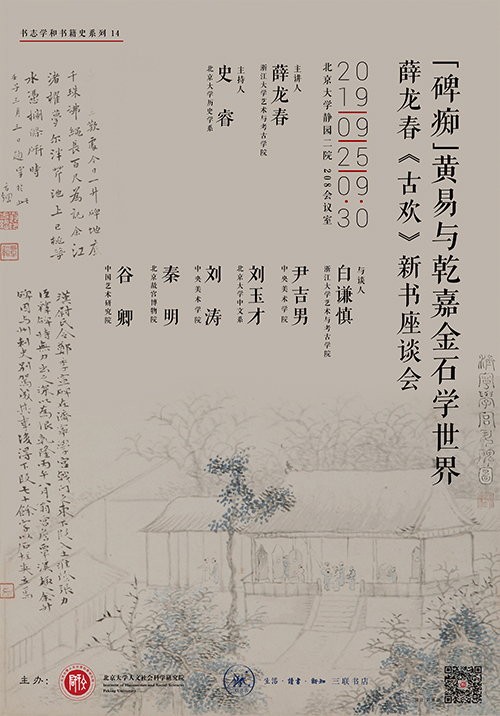 书志学和书籍史系列 14
「碑痴」黄易与乾嘉金石学世界
薛龙春《古欢》新书座谈会
2019
09
25
09:30
北京大学静园二院 208会议室
主讲人
薛龙春
浙江大学艺术与考古学院
主持人
史睿
北京大学历史学系
与谈人
白谦慎
浙江大学艺术与考古学院
尹吉男
中央美术学院
刘玉才
北京大学中文系
刘涛
中央美术学院
秦明
北京故宫博物院
谷卿
中国艺术研究院
濟寧學宮升碑圖
千珠佛繩長百尺為記余江
漢尉氏令鄭季宣碑在濟寧學宮戟門之東下段入土
主办：
北京大学人文社会科学研究院
Institute of Humanities and Social Sciences
Peking University
生活·读书·新知 三联书店